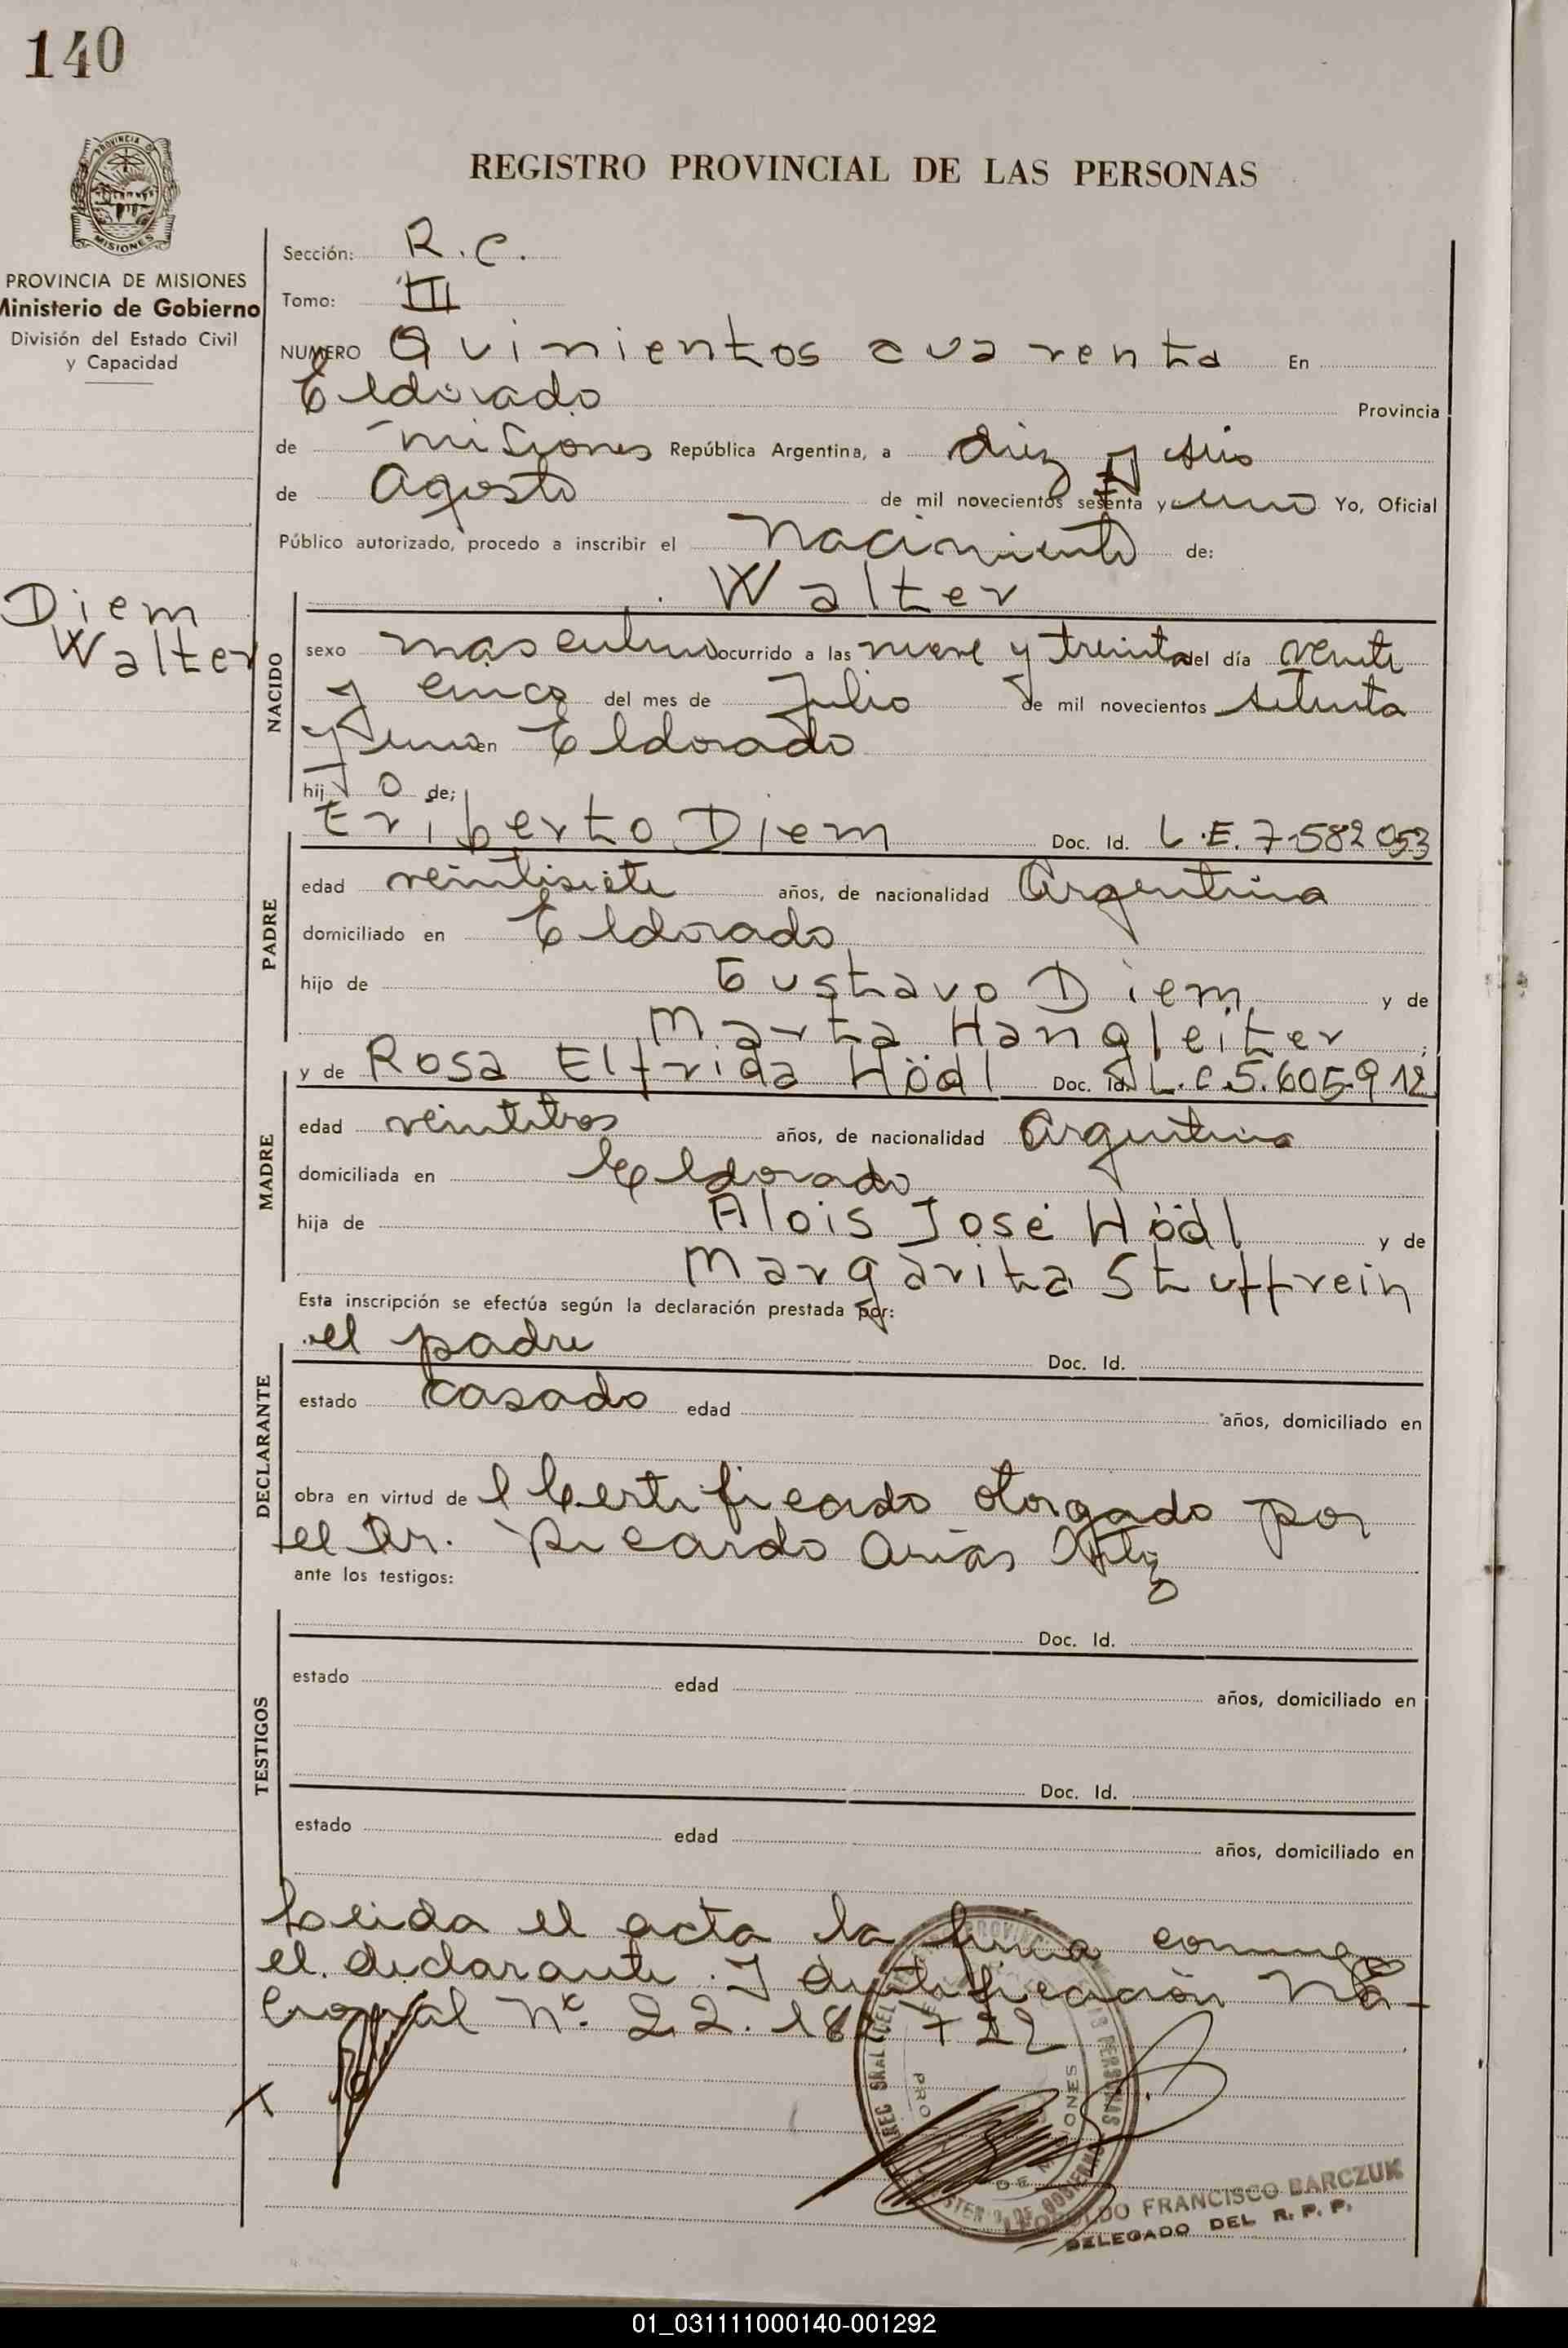 140
PROVINCIA DE MISIONES
PROVINCIA DE MISIONES
Ministerio de Gobierno
División del Estado Civil
y Capacidad
REGISTRO PROVINCIAL DE LAS PERSONAS
Sección: R.C.
Tomo: III
NUMERO Quinientos cuarenta En
Eldorado Provincia
de misiones República Argentina, a diez y seis
de Agosto de mil novecientos sesenta y uno Yo, Oficial
Público autorizado, procedo a inscribir el Nacimiento de:
Diem
Walter
Walter
NACIDO
sexo masculino ocurrido a las nueve y treinta del día veinte
y cinco del mes de Julio de mil novecientos setenta
y uno en Eldorado
hijo de;
PADRE
Eriberto Diem Doc. Id. L.E. 7.582053
edad veintisiete años, de nacionalidad Argentina
domiciliado en Eldorado
hijo de Gustavo Diem y de
Marta Hangleiter;
MADRE
y de Rosa Elfrida Hödl Doc. Id. L.C.5.605912
edad veintitres años, de nacionalidad Argentina
domiciliada en Eldorado
hija de Alois José Hödl y de
Margarita Stuffrein
Esta inscripción se efectúa según la declaración prestada por:
DECLARANTE
el padre Doc. Id.
estado casado edad años, domiciliado en
obra en virtud del Certificado otorgado por
el Dr. Ricardo Arias
ante los testigos:
TESTIGOS
Doc. Id.
estado edad años, domiciliado en
Doc. Id.
estado edad años, domiciliado en
Leida el acta la firma conmigo
el declarante. Identificación Na-
cional Nº 22.18
LEOPOLDO FRANCISCO BARCZUK
DELEGADO DEL R. P. P.
01_031111000140-001292